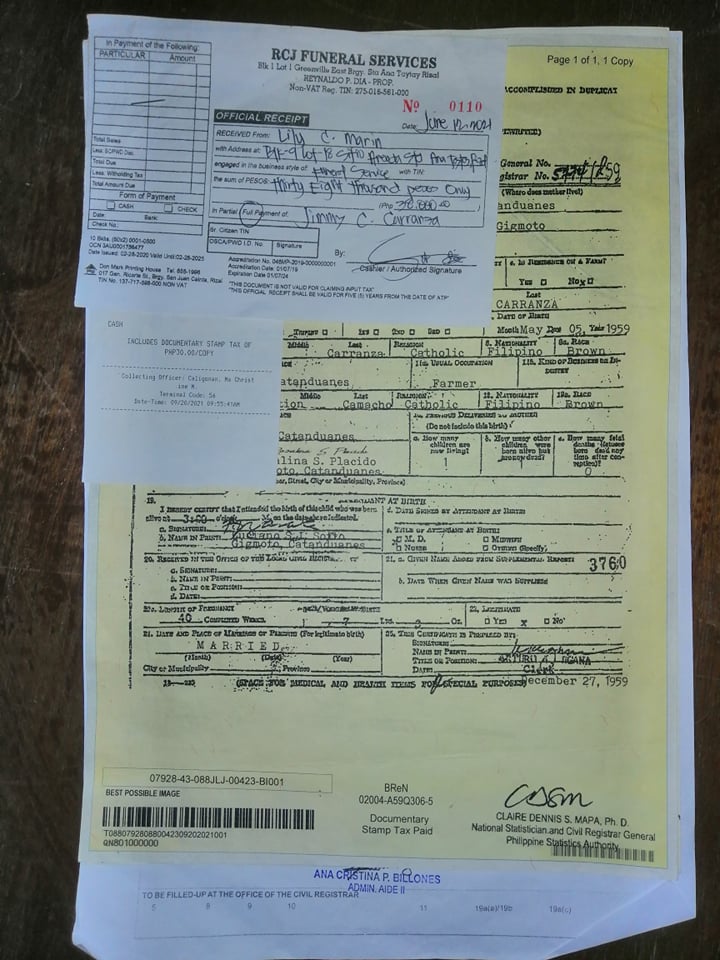 In Payment of the Following:
PARTICULAR Amount
Total Sales
Less: SC/PWD Disc.
Total Due
Less: Withholding Tax
Total Amount Due
Form of Payment
CASH CHECK
Date: Bank:
Check No.:
10 Bkls. (50x2) 0001-0500
Date Issued: 02-28-2020 Valid Until: 02-28-2025
Don Mark Printing House Tel. 655-1996
TIN No. 137-717-598-000 NON VAT
RCJ FUNERAL SERVICES
Blk 1 Lot 1 Greenville East Brgy. Sta Ana Taytay Rizal
REYNALDO P. DIA - PROP.
Non-VAT Reg. TIN: 275-018-561-000
OFFICIAL RECEIPT
No 0110
Date: June 12, 2021
RECEIVED From: Lily C. Marin
with Address at
engaged in the business style of Funeral Service with TIN:
the sum of PESOS: thirty Eight thousand pesos only
In Partial / Full Payment of Jimmy C. Carranza
Sr. Citizen TIN
OSCA/PWD I.D. No. Signature
By:
Cashier / Authorized Signature
Accreditation Date: 01/07/19
Expiration Date: 01/07/24
"THIS DOCUMENT IS NOT VALID FOR CLAIMING INPUT TAX"
"THIS OFFICIAL RECEIPT SHALL BE VALID FOR FIVE (5) YEARS FROM THE DATE OF ATP"
Page 1 of 1, 1 Copy
ACCOMPLISHED IN DUPLICAT
General No.
gistrar No.
(Where does mother live?)
anduanes
Gigmoto
IS RESIDENCE ON A FARM?
YES NO X
Last
CARRANZA
DATE OF BIRTH
Month May Day 05, Year 1959
CASH
INCLUDES DOCUMENTARY STAMP TAX OF
PHP30.00/COPY
Collecting Officer: Caligonan, Ma Christ
ine M.
Terminal Code: 54
Date-Time: 09/20/2021 09:55:47AM
Middle Last RELIGION 8. NATIONALITY 8a. RACE
Carranza Catholic Filipino Brown
11a. USUAL OCCUPATION 11b. KIND OF BUSINESS OR INDUSTRY
atanduanes Farmer
Middle Last RELIGION 13. NATIONALITY 13a. RACE
ion Camacho Catholic Filipino Brown
PREVIOUS DELIVERIES TO MOTHER
(Do not include this birth)
Catanduanes
a. How many children are now living?
b. How many other children were born alive but are now dead?
1 0
lina S. Placido
oto, Catanduanes
ber, Street, City or Municipality, Province)
19. ATTENDANT AT BIRTH
I HEREBY CERTIFY that I attended the birth of this child who was born
d. DATE SIGNED BY ATTENDANT AT BIRTH:
a. SIGNATURE:
b. NAME IN PRINT:
Gigmoto, Catanduanes
e. TITLE OF ATTENDANT AT BIRTH:
M. D. MIDWIFE
NURSE OTHERS (Specify)
20. RECEIVED IN THE OFFICE OF THE LOCAL CIVIL REGISTRAR
a. SIGNATURE:
b. NAME IN PRINT:
c. TITLE OR POSITION:
d. DATE:
21. a. GIVEN NAME ADDED FROM SUPPLEMENTAL REPORT: 3760
b. DATE WHEN GIVEN NAME WAS SUPPLIED:
22a. LENGTH OF PREGNANCY
40 COMPLETED WEEKS 7 Lbs. 3 Oz.
23. LEGITIMATE
YES X NO
24. DATE AND PLACE OF MARRIAGE OF PARENTS (For legitimate birth)
MARRIED
(Month) (Date) (Year)
City or Municipality Province
25. THIS CERTIFICATE IS PREPARED BY:
SIGNATURE:
NAME IN PRINT:
TITLE OR POSITION: Clerk
DATE: December 27, 1959
(SPACE FOR MEDICAL AND HEALTH ITEMS FOR SPECIAL PURPOSES)
07928-43-088JLJ-00423-BI001
BEST POSSIBLE IMAGE
T088079280880042309202021001
QN801000000
BReN
02004-A59Q306-5
Documentary
Stamp Tax Paid
CLAIRE DENNIS S. MAPA, Ph. D.
National Statistician and Civil Registrar General
Philippine Statistics Authority
ANA CRISTINA P. BILLONES
ADMIN. AIDE II
TO BE FILLED-UP AT THE OFFICE OF THE CIVIL REGISTRAR
5 8 9 10 11 19(a)/19b 19(a)(c)